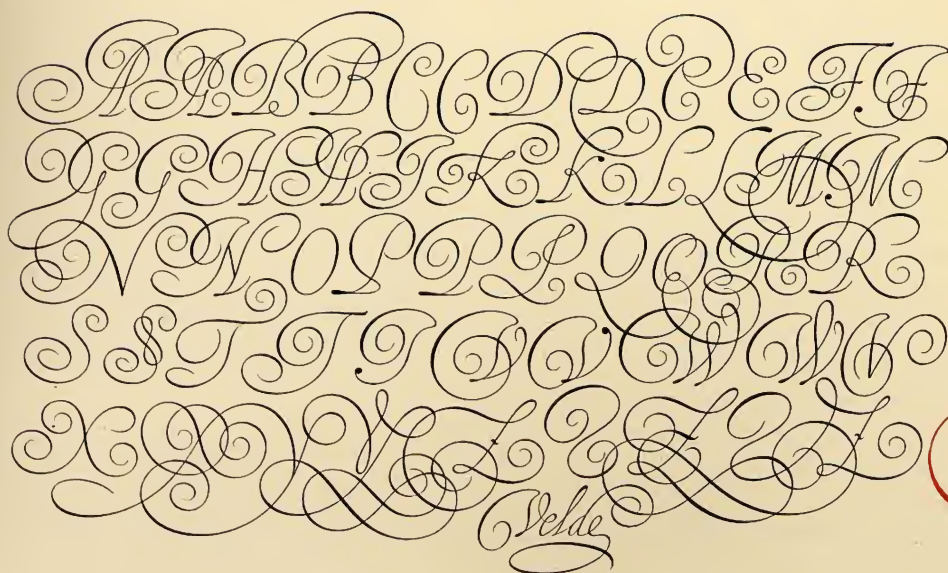 A A B B C C D D E E F F
G G H H I K K L L M M
N N O P P P Q Q R R
S S T T T V V W W V
X X Y Y Z Z Z Z Z
Velde